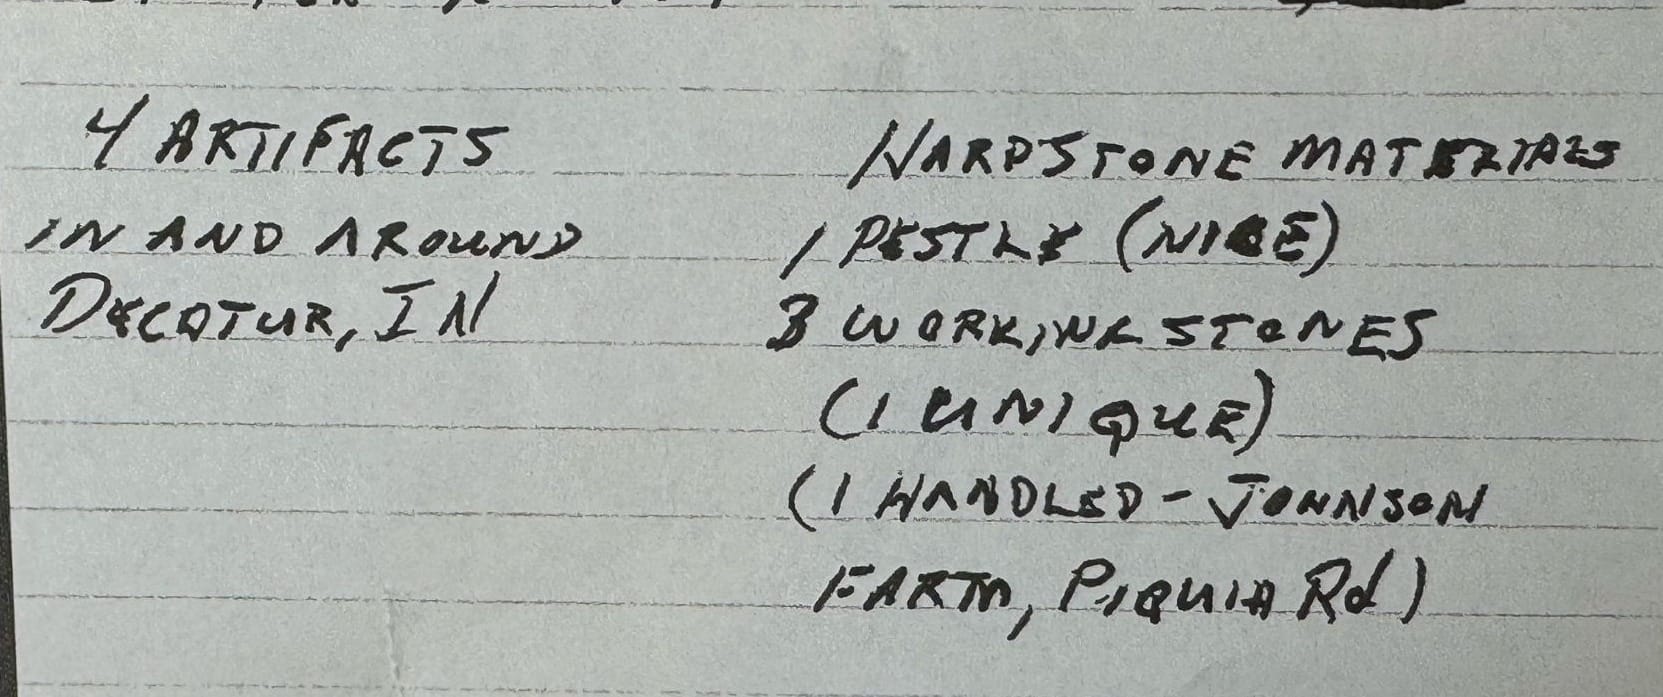 4 ARTIFACTS
IN AND AROUND
DECATUR, IN
HARDSTONE MATERIALS
1 PESTLE (NICE)
3 WORKING STONES
(1 UNIQUE)
(1 HANDLED - JOHNSON
FARM, PIQUIA Rd)